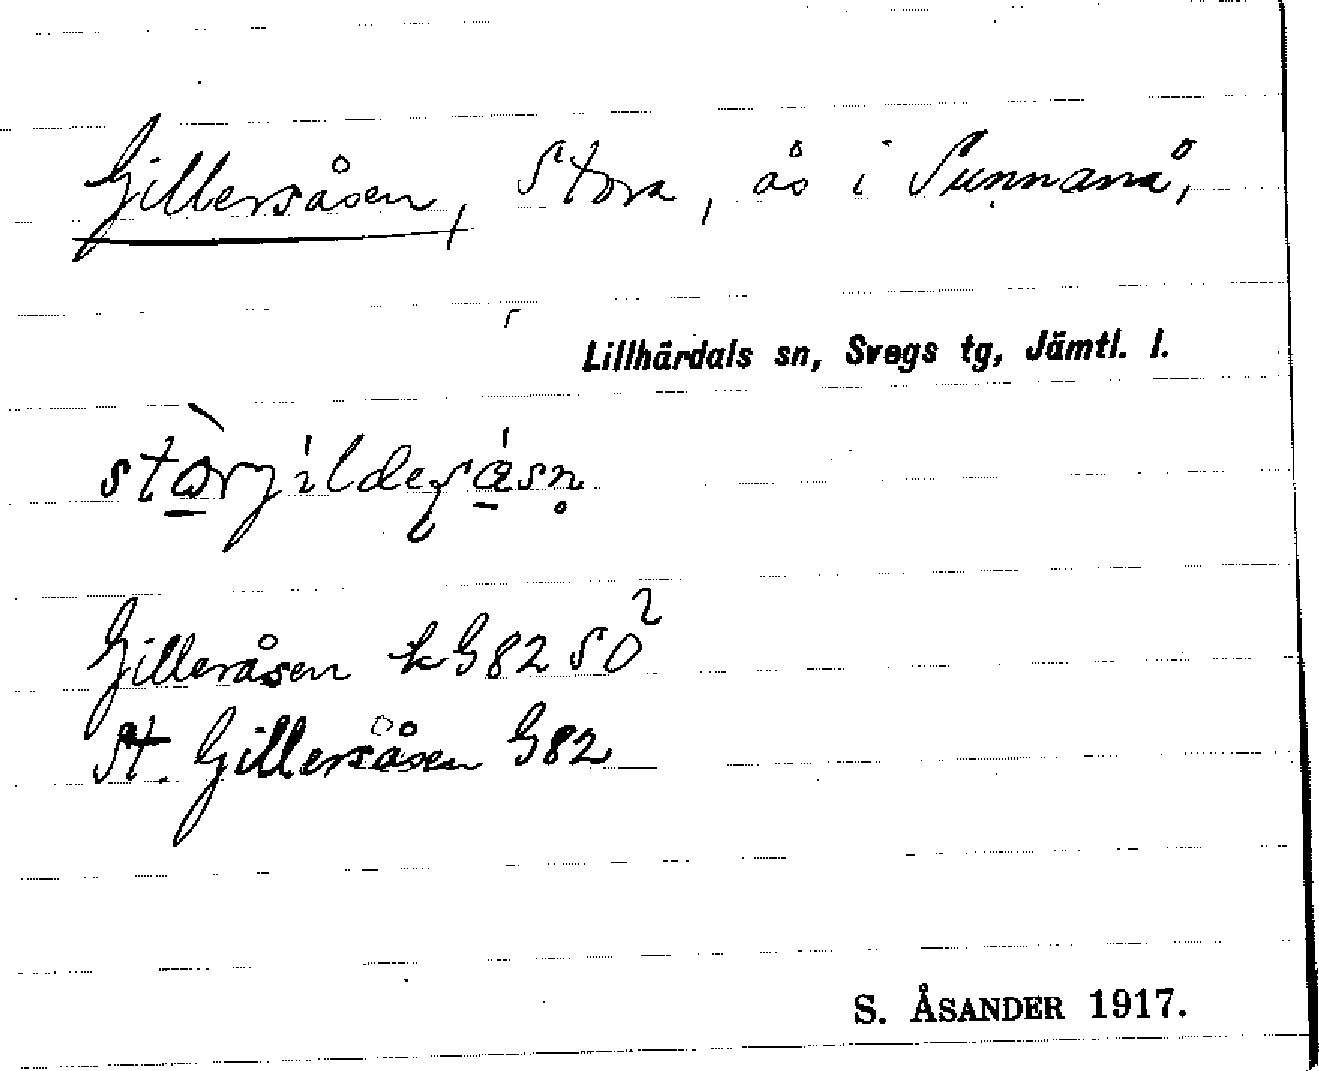 Gillersåsen, Stora, ås i Sunnanå,
Lillhärdals sn, Svegs tg, Jämtl. l.
Gilleråsen k G82 SO²
St. Gillersåsen G82
S. ÅSANDER 1917.